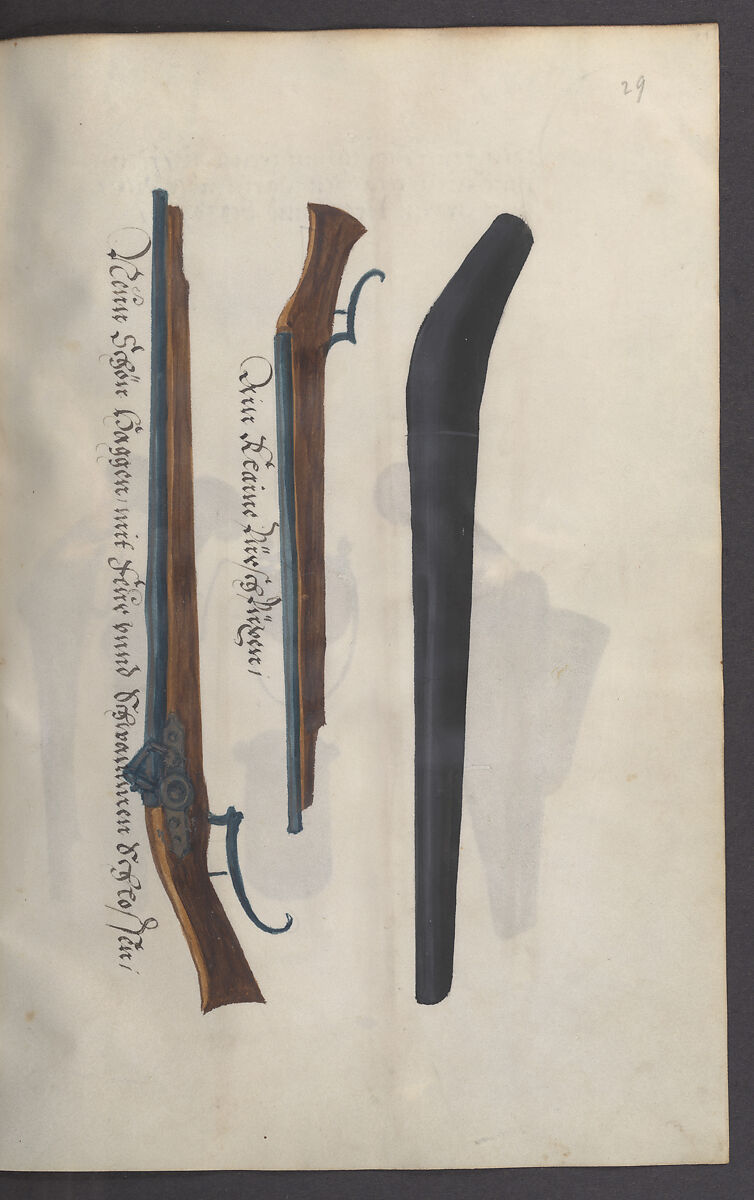 29
Mein Schön Haggen, mit Feür vnnd Schwammen Schlossen,
Ein Klaine Pürschpüxen,